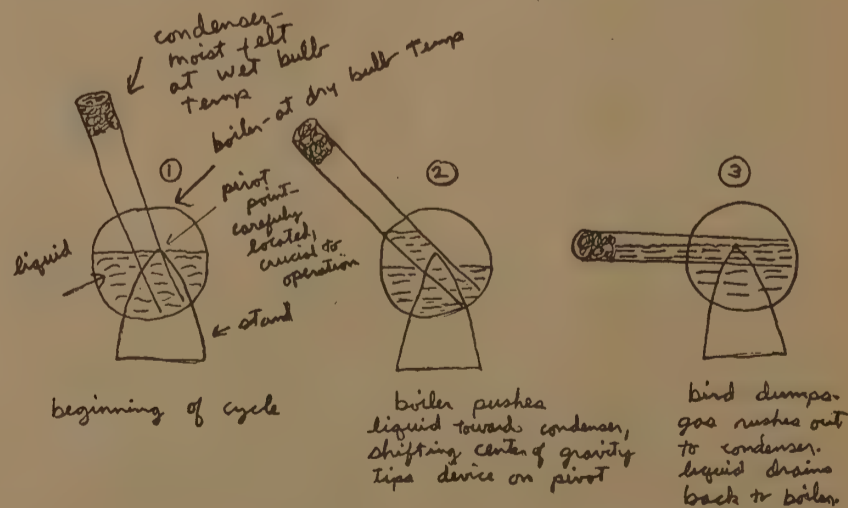 condenser-
moist felt
at wet bulb
temp
boiler-at dry bulb temp
①
pivot
point-
carefully
located,
crucial to
operation
liquid
stand
beginning of cycle
②
boiler pushes
liquid toward condenser,
shifting center of gravity
tips device on pivot
③
bird dumps.
gas rushes out
to condenser.
liquid drains
back to boiler.